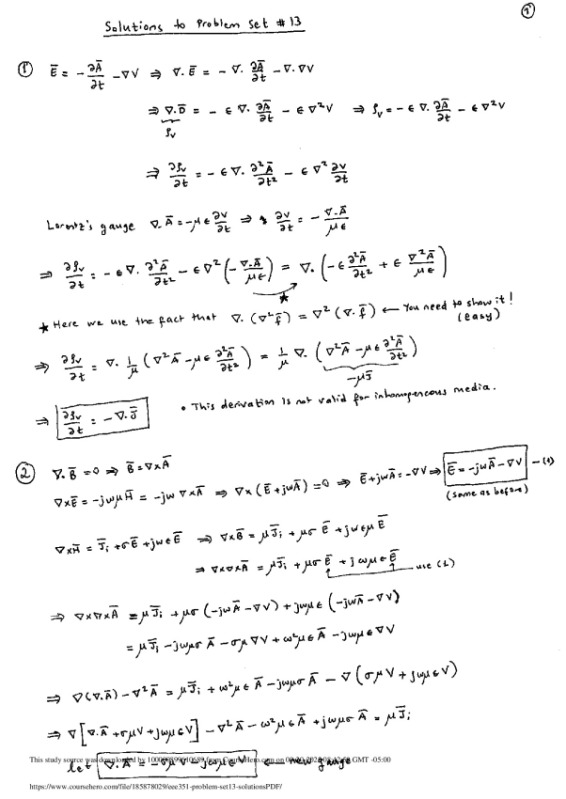 1
Solutions to Problem Set #13
① Ē = -∂Ā/∂t - ∇V ⇒ ∇.Ē = -∇.∂Ā/∂t - ∇.∇V
⇒ ∇.D̄ = -ϵ∇.∂Ā/∂t - ϵ∇²V ⇒ ρᵥ = -ϵ∇.∂Ā/∂t - ϵ∇²V
ρᵥ
⇒ ∂ρᵥ/∂t = -ϵ∇.∂²Ā/∂t² - ϵ∇²∂V/∂t
Lorentz's gauge ∇.Ā = -μϵ∂V/∂t ⇒ ∂V/∂t = -∇.Ā/μϵ
⇒ ∂ρᵥ/∂t = -ϵ∇.∂²Ā/∂t² - ϵ∇²(-∇.Ā/μϵ) = ∇.(-ϵ∂²Ā/∂t² + ϵ∇²Ā/μϵ)
★
★ Here we use the fact that ∇.(∇²f̄) = ∇²(∇.f̄) ← You need to show it!
(easy)
⇒ ∂ρᵥ/∂t = ∇.1/μ(∇²Ā - μϵ∂²Ā/∂t²) = 1/μ ∇.(∇²Ā - μϵ∂²Ā/∂t²)
-μJ̄
⇒ ∂ρᵥ/∂t = -∇.J̄ • This derivation is not valid for inhomogeneous media.
② ∇.B̄ = 0 ⇒ B̄ = ∇×Ā
∇×Ē = -jωμH̄ = -jω∇×Ā ⇒ ∇×(Ē+jωĀ) = 0 ⇒ Ē+jωĀ = -∇V ⇒ Ē = -jωĀ - ∇V —(1)
(same as before)
∇×H̄ = J̄ᵢ + σĒ + jωϵĒ ⇒ ∇×B̄ = μJ̄ᵢ + μσĒ + jωϵμĒ
⇒ ∇×∇×Ā = μJ̄ᵢ + μσĒ + jωμϵĒ
use (1)
⇒ ∇×∇×Ā = μJ̄ᵢ + μσ(-jωĀ - ∇V) + jωμϵ(-jωĀ - ∇V)
= μJ̄ᵢ - jωμσĀ - σμ∇V + ω²μϵĀ - jωμϵ∇V
⇒ ∇(∇.Ā) - ∇²Ā = μJ̄ᵢ + ω²μϵĀ - jωμσĀ - ∇(σμV + jωμϵV)
⇒ ∇[∇.Ā + σμV + jωμϵV] - ∇²Ā - ω²μϵĀ + jωμσĀ = μJ̄ᵢ
This study source was downloaded by from CourseHero.com on GMT -05:00
let ∇.Ā = -σμV - jωμϵV ← new gauge
https://www.coursehero.com/file/185878029/eee351-problem-set13-solutionsPDF/